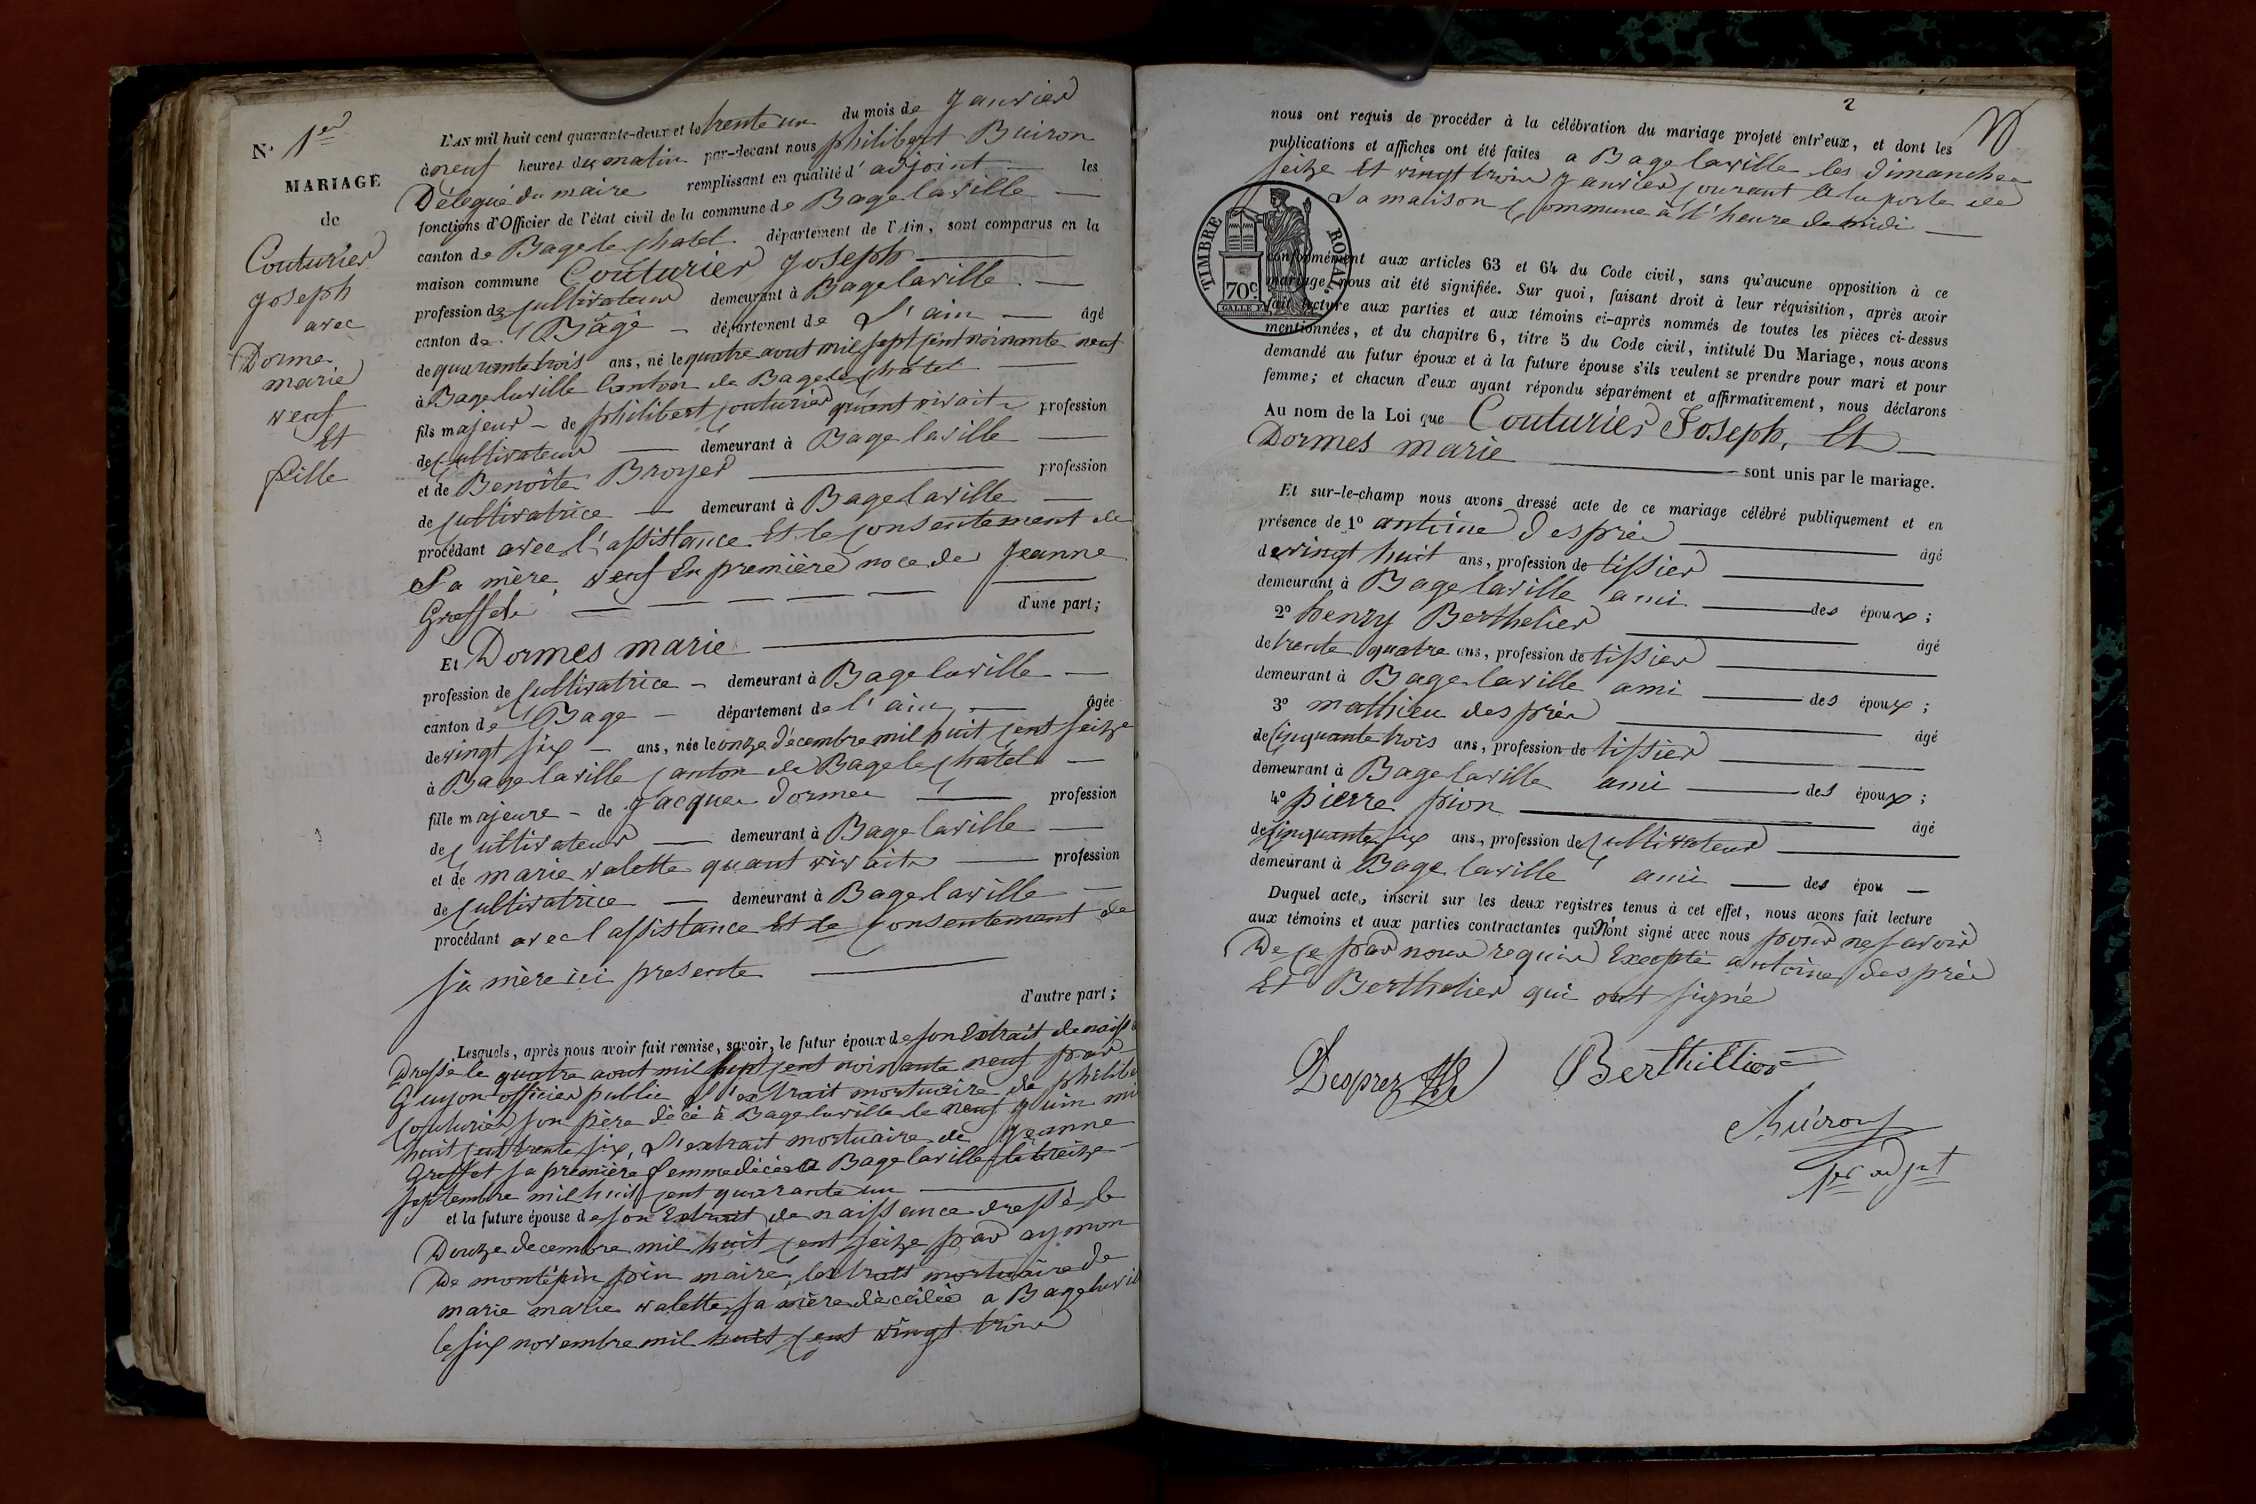 N° 1er
MARIAGE
de
Couturier
Joseph
avec
Dormes
marie
veuf
Et
fille
L'AN mil huit cent quarante-deux et le trente un du mois de Janvier
à neuf heures du matin par-devant nous philibert Buiron
Délégué du maire remplissant en qualité d'adjoint les
fonctions d'Officier de l'état civil de la commune de Bagelaville
canton de Bagelechatel département de l'Ain, sont comparus en la
maison commune Couturier Joseph
profession de cultivateur demeurant à Bagelaville
canton de Bâgé département de L'ain âgé
de quarante trois ans, né le quatre aout mil sept cent noinante neuf
à Bagelaville Canton de Bagelechatel
fils majeur de philibert couturier quant vivait profession
de cultivateur demeurant à Bagelaville
et de Benoite Broyer profession
de cultivatrice demeurant à Bagelaville
procédant avec l'assistance Et le consentement de
Sa mère, veuf En première noce de Jeanne
Greffet d'une part;
Et Dormes marie
profession de cultivatrice demeurant à Bagelaville
canton de Bage département de l'ain âgée
de vingt six ans, née le onze décembre mil huit cent seize
à Bagelaville canton de Bagelechatel
fille majeure de Jacques Dormes profession
de cultivateur demeurant à Bagelaville
et de marie valette quant vivait profession
de cultivatrice demeurant à Bagelaville
procédant avec l'assistance Et le consentement de
sa mère ici presente
d'autre part;
Lesquels, après nous avoir fait remise, savoir, le futur époux de son Extrait de naiss
Dressé le quatre aout mil sept cent noinante neuf par
Guyon officier public L'extrait mortuaire de philibe
Couturier son père décé à Bagelaville le neuf juin mil
huit cent trente six, L'extrait mortuaire de Jeanne
Greffet sa première femme décéé a Bagelaville le treize
septembre mil huit cent quarante un
et la future épouse de son Extrait de naissance dressé le
Douze decembre mil huit cent seize par aymon
De montépin maire, lextrait mortuaire de
marie marie valette sa mère décédée a Bagelavil
le six novembre mil huit cent vingt trois
2
nous ont requis de procéder à la célébration du mariage projeté entr'eux, et dont les
publications et affiches ont été faites a Bagelaville les dimanches
seize Et vingt trois janvier courant a la porte de
La maison Commune à l'heure de midi
TIMBRE ROYAL.
70c.
conformément aux articles 63 et 64 du Code civil, sans qu'aucune opposition à ce
mariage nous ait été signifiée. Sur quoi, faisant droit à leur réquisition, après avoir
fait lecture aux parties et aux témoins ci-après nommés de toutes les pièces ci-dessus
mentionnées, et du chapitre 6, titre 5 du Code civil, intitulé Du Mariage, nous avons
demandé au futur époux et à la future épouse s'ils veulent se prendre pour mari et pour
femme; et chacun d'eux ayant répondu séparément et affirmativement, nous déclarons
Au nom de la Loi que Couturier Joseph, Et
Dormes marie sont unis par le mariage.
Et sur-le-champ nous avons dressé acte de ce mariage célébré publiquement et en
présence de 1° antoine després âgé
de vingt huit ans, profession de tissier
demeurant à Bagelaville ami des époux;
2° henry Berthelier âgé
de trente quatre ans, profession de tissier
demeurant à Bagelaville ami des époux;
3° mathieu després âgé
de cinquante trois ans, profession de tissier
demeurant à Bagelaville ami des époux;
4° pierre pion âgé
de cinquante six ans, profession de cultivateur
demeurant à Bagelaville ami des épou
Duquel acte, inscrit sur les deux registres tenus à cet effet, nous avons fait lecture
aux témoins et aux parties contractantes qui n'ont signé avec nous pour ne savoir
De ce par nous requis Excepté antoine després
Et Berthelier qui ont signé
Desprez
Berthillier
Buiron
1er adjnt